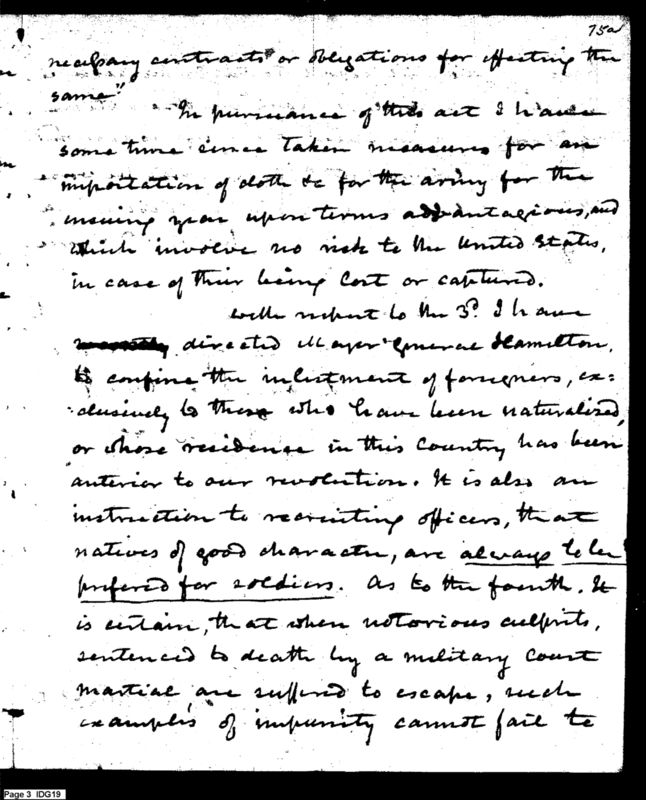 75a
necessary contracts or obligations for effecting the
same"
In pursuance of this act I have
some time since taken measures for an
importation of cloth &c for the army for the
ensuing year upon terms advantagious, and
which involve no risk to the United States,
in case of their being lost or captured.
with respect to the 3d. I have
directed Major General Hamilton,
to confine the inlistment of foreigners, ex=
clusively to those who have been naturalized,
or whose residence in this country has been
anterior to our revolution. It is also an
instruction to recruiting officers, that
natives of good character, are always to be
prefered for soldiers. As to the fourth. It
is certain, that when notorious culprits,
sentenced to death by a military court
martial are suffered to escape, such
examples of impunity cannot fail to
Page 3 IDG19